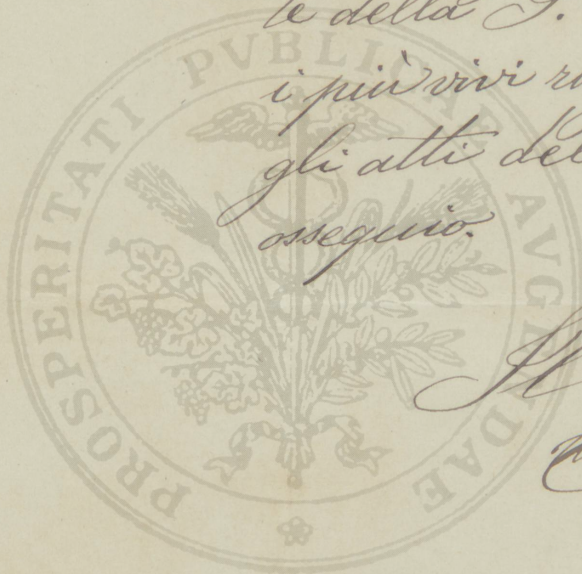 te della S.
i più vivi
gli atti del
osseguio.
Il
PROSPERITATI PVBLICAE AVGENDAE